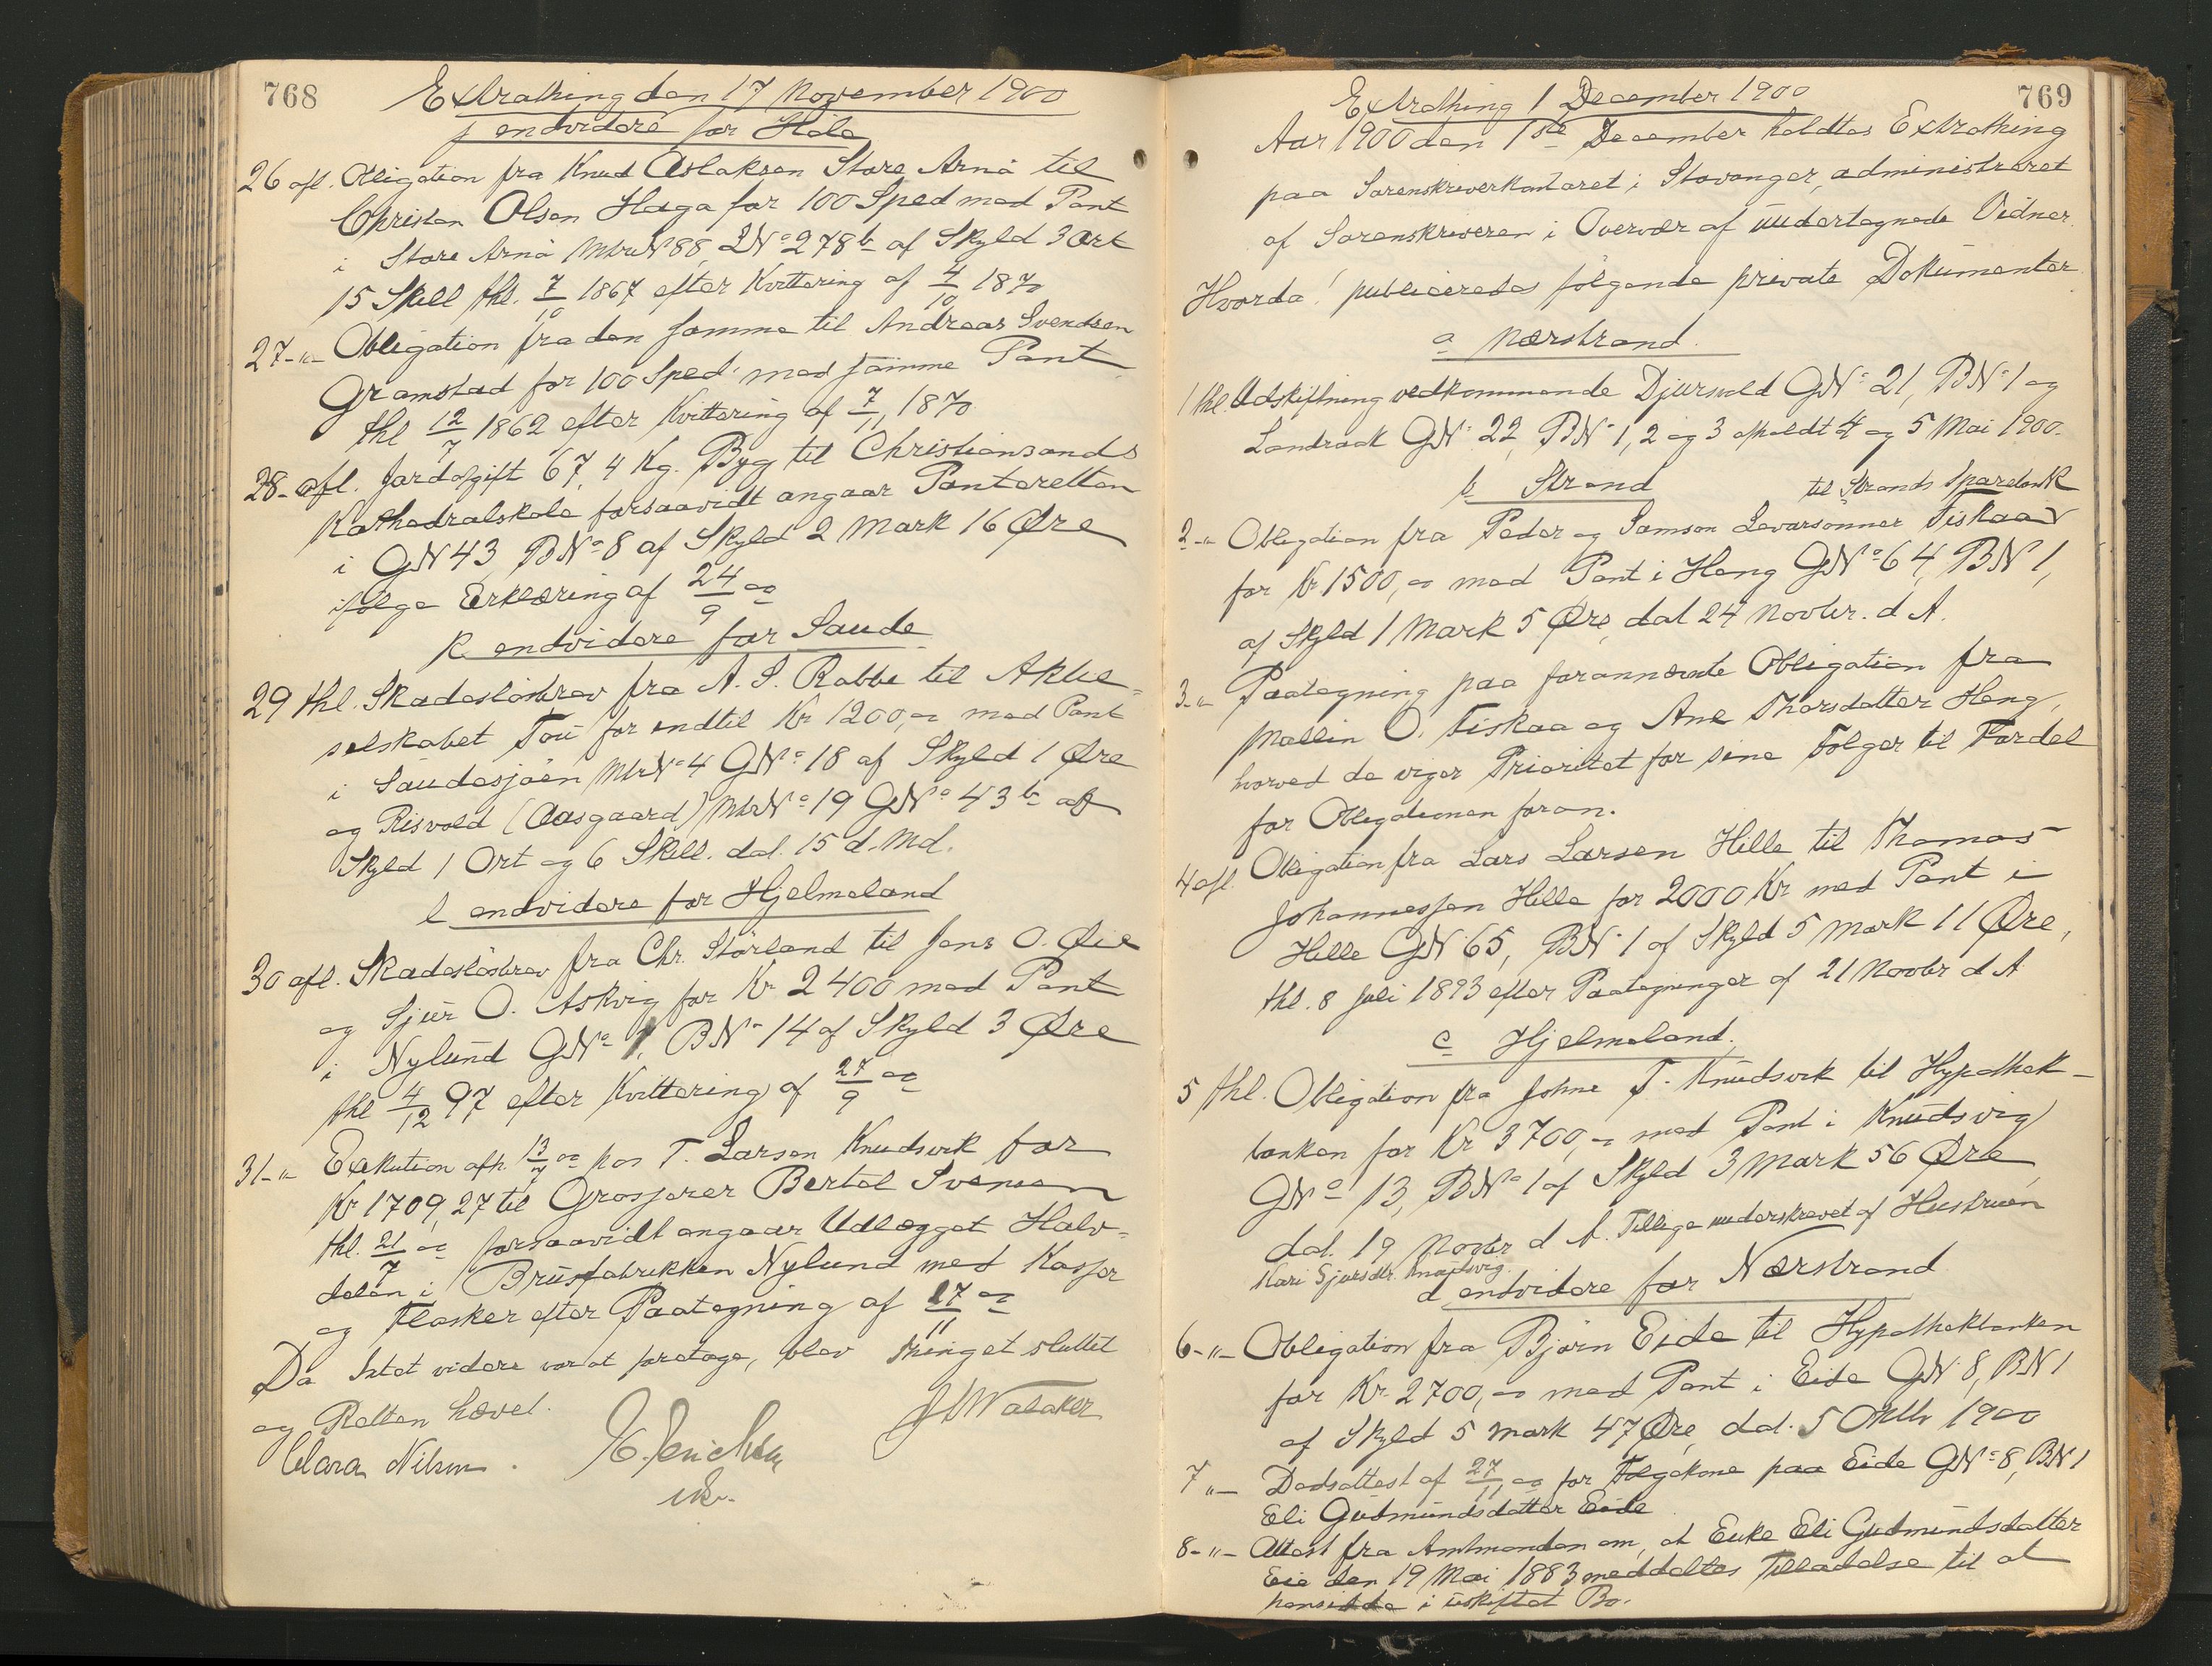 768
Extrathing den 17 November 1900
j endvidere for Høle
26 afl. Obligation fra Knud Aslaksen Store Arnå til
Christen Olsen Haga for 100 Sped med Pant
i Store Arnå Mtr№ 88, L№ 278b af Skyld 3 Ort
15 Skill thl. 7/10 1867 efter Kvittering af 4/10 1870
27-"- Obligation fra den samme til Andreas Svendsen
Gramstad for 100 Sped. med samme Pant
thl 12/7 1862 efter Kvittering af 7/11 1870
28- afl. Jordafgift 67,4 Kg. Byg til Christiansands
Kathedralskole forsaavidt angaar Panteretten
i GN 43 BN° 8 af Skyld 2 Mark 16 Øre
ifølge Erklæring af 24/9 00
k endvidere for Saude
29 thl. Skadesløsbrev fra A. S. Rabbe til Aktie=
selskabet Tou for indtil Kr 1200,00 med Pant
i Saudesjøen MtrN° 4 GN° 18 af Skyld 1 Øre
og Risvold (Aasgaard) MtrN° 19 GN° 43b af
Skyld 1 Ort og 6 Skill. dat. 15 d. Md.
l endvidere for Hjelmeland
30 afl. Skadesløsbrev fra Chr. Størland til Jens O. Øie
og Sjur O. Askvig for Kr 2400 med Pant
i Nylund GN° 1, BN° 14 af Skyld 3 Øre
thl 4/12 97 efter Kvittering af 27/9 00
31-"- Exekution afh. 13/7 00 hos T. Larsen Knudsvik for
Kr 1709,27 til Grosserer Bertol Svensen
thl. 21/7 00 forsaavidt angaar Udlægget Halv-
delen i Brusfabrikken Nylund med Kasser
og Flasker efter Paategning af 17/11 00
Da Intet videre var at foretage, blev Thinget sluttet
og Retten hævet.
Clara Nilsen.
769
Extrathing 1 December 1900
Aar 1900 den 1ste December holdtes Extrathing
paa Sorenskriverkontoret i Stavanger, administreret
af Sorenskriveren i Overvær af undertegnede Vidner.
Hvorda! publiceredes følgende private Dokumenter
a Nærstrand.
1 thl. Udskiftning vedkommende Djursvold GN° 21, BN° 1 og
Landraak GN° 22, BN° 1, 2 og 3 afholdt 4 og 5 Mai 1900.
b Strand
til Strands Sparebank
2-"- Obligation fra Peder og Samson Sevarsønner Fiskaa
for Kr 1500,00 med Pant i Heng GN° 64, BN 1,
af Skyld 1 Mark 5 Øre, dat 24 Novbr. d A.
3-"- Paategning paa forannævnte Obligation fra
Mallin O. Fiskaa og Ane Thorsdatter Heng,
hvorved de viger Prioritet for sine Folger til Fordel
for Obligationen foran.
4 afl. Obligation fra Lars Larsen Hille til Thomas
Johannessen Hille for 2000 Kr med Pant i
Hille GN 65, BN° 1 af Skyld 5 Mark 11 Øre,
thl. 8 Juli 1893 efter Paategninger af 21 Novbr d A
c Hjelmeland.
5 thl. Obligation fra Johne T. Knudsvik til Hypothek-
banken for Kr 3700,00 med Pant i Knudsvig
GN° 13, BN° 1 af Skyld 3 Mark 56 Øre,
dat. 19 Novbr d A. Tillige underskrevet af Hustruen
Kari Sjursdtr. Knudsvig.
d endvidere for Nærstrand
6-"- Obligation fra Bjørn Eide til Hypothekbanken
for Kr. 2700,00 med Pant i Eide GN 8, BN 1
af Skyld 5 Mark 47 Øre, dat. 5 Oktbr 1900
7 "- Dødsattest af 27/11 00 for Folgekone paa Eide GN° 8, BN 1
Eli Gudmundsdatter Eide
8-"- Attest fra Amtmanden om, at Enke Eli Gudmundsdatter
Eie den 19 Mai 1883 meddeltes Tilladelse til at
hensidde i uskiftet Bo.